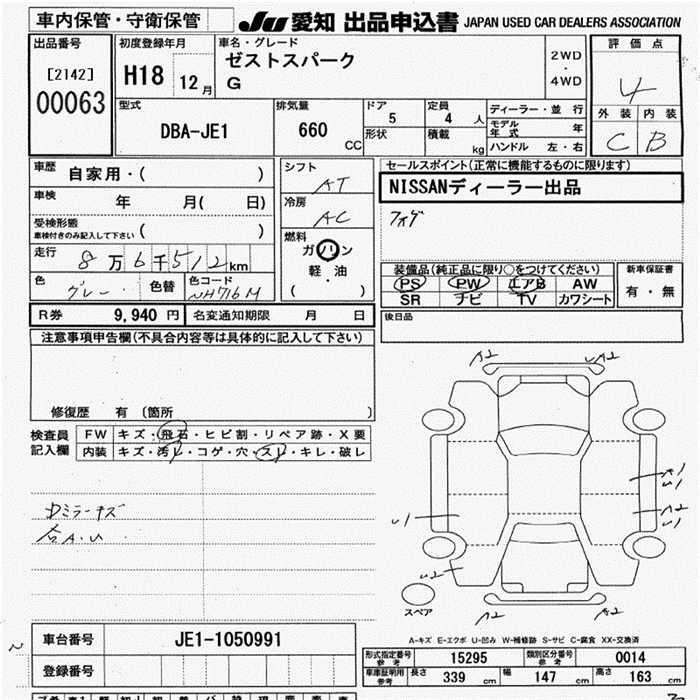 車内保管・守衛保管 JU 愛知 出品申込書 JAPAN USED CAR DEALERS ASSOCIATION
出品番号 初度登録年月 車名・グレード 評価点
[2142] H18 12月 ゼストスパーク 2WD・4WD 4
00063 G
型式 排気量 ドア 5 定員 4人 ディーラー・並行 外装 内装
DBA-JE1 660 CC 形状 積載 kg モデル年式 年 C B
ハンドル 左・右
車歴 自家用・( ) シフト AT セールスポイント(正常に機能するものに限ります)
車検 年 月( 日) 冷房 AC NISSANディーラー出品
受検形態 ( ) フォグ
車検付きのみ記入して下さい
燃料 ガソリン 軽・油 ( )
走行 8万6千512km 装備品(純正品に限り○をつけてください) 新車保証書
色 グレー 色替 色コード NH716M PS PW エアB AW 有・無
SR ナビ TV カワシート
R券 9,940円 名変通知期限 月 日 後日品
注意事項申告欄(不具合内容等は具体的に記入して下さい)
A2 A2
修復歴 有 (箇所 )
検査員記入欄 FW キズ・飛石・ヒビ割・リペア跡・X要
内装 キズ・汚レ・コゲ・穴・スレ・キレ・破レ
A1
U1
Dミラーキズ U1 A2
合A.U U1
U2
スペア A2 A2
A-キズ E-エクボ U-凹み W-補修跡 S-サビ C-腐食 XX-交換済
車台番号 JE1-1050991
形式指定番号 参考 15295 類別区分番号 参考 0014
登録番号 車庫証明用 参考 長さ 339 cm 幅 147 cm 高さ 163 cm